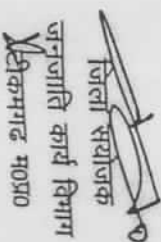 जिला संयोजक
जनजाति कार्य विभाग
टीकमगढ़ म०प्र०